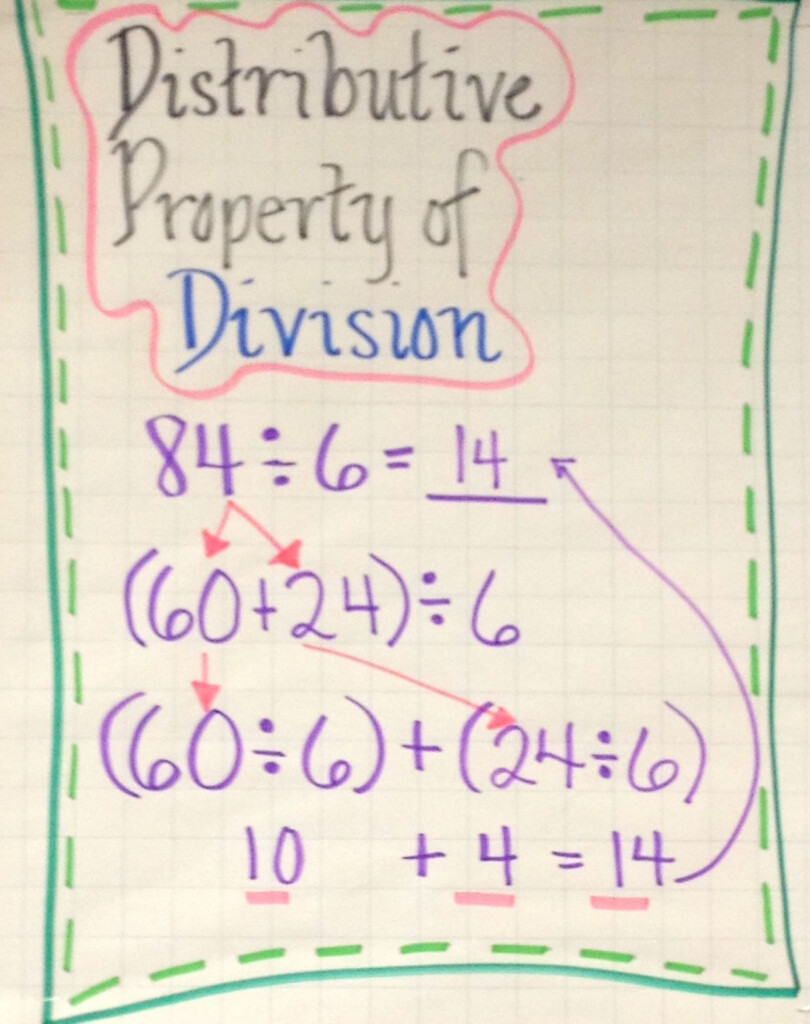 Distributive
Property of
Division
84÷6= 14
(60+24)÷6
(60÷6)+(24÷6)
10 + 4 = 14